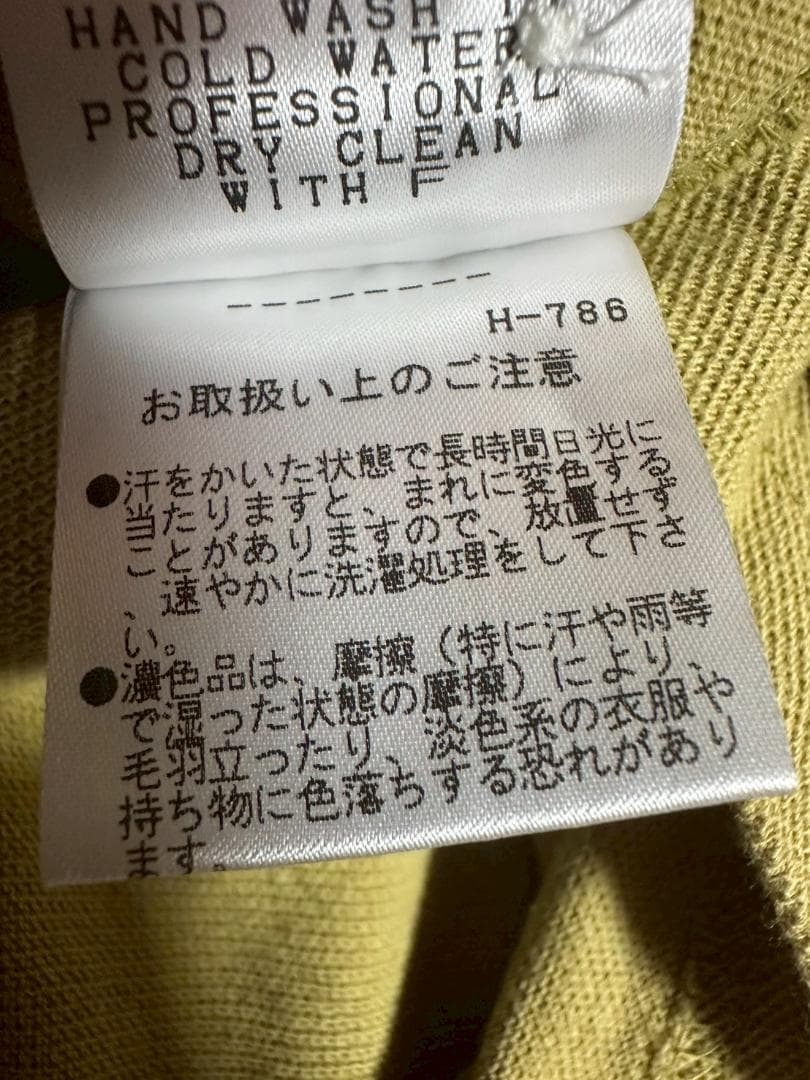 HAND WASH IN
COLD WATER
PROFESSIONAL
DRY CLEAN
WITH F
--------
H-786
お取扱い上のご注意
●汗をかいた状態で長時間日光に
当たりますと、まれに変色する
ことがありますので、放置せず
、速やかに洗濯処理をして下さ
い。
●濃色品は、摩擦（特に汗や雨等
で湿った状態の摩擦）により、
毛羽立ったり、淡色系の衣服や
持ち物に色落ちする恐れがあり
ます。